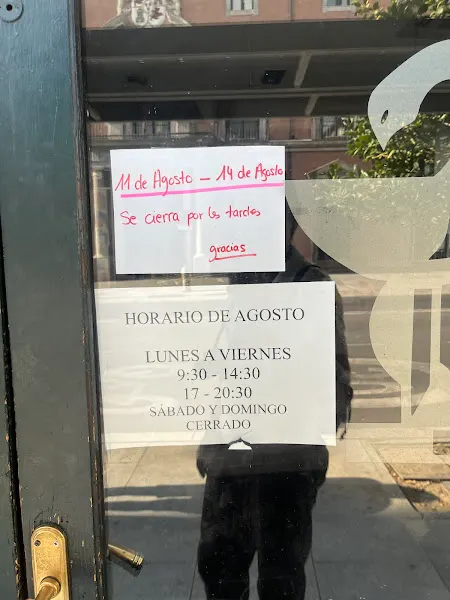 11 de Agosto - 14 de Agosto
Se cierra por las tardes
gracias
HORARIO DE AGOSTO
LUNES A VIERNES
9:30 - 14:30
17 - 20:30
SÁBADO Y DOMINGO
CERRADO